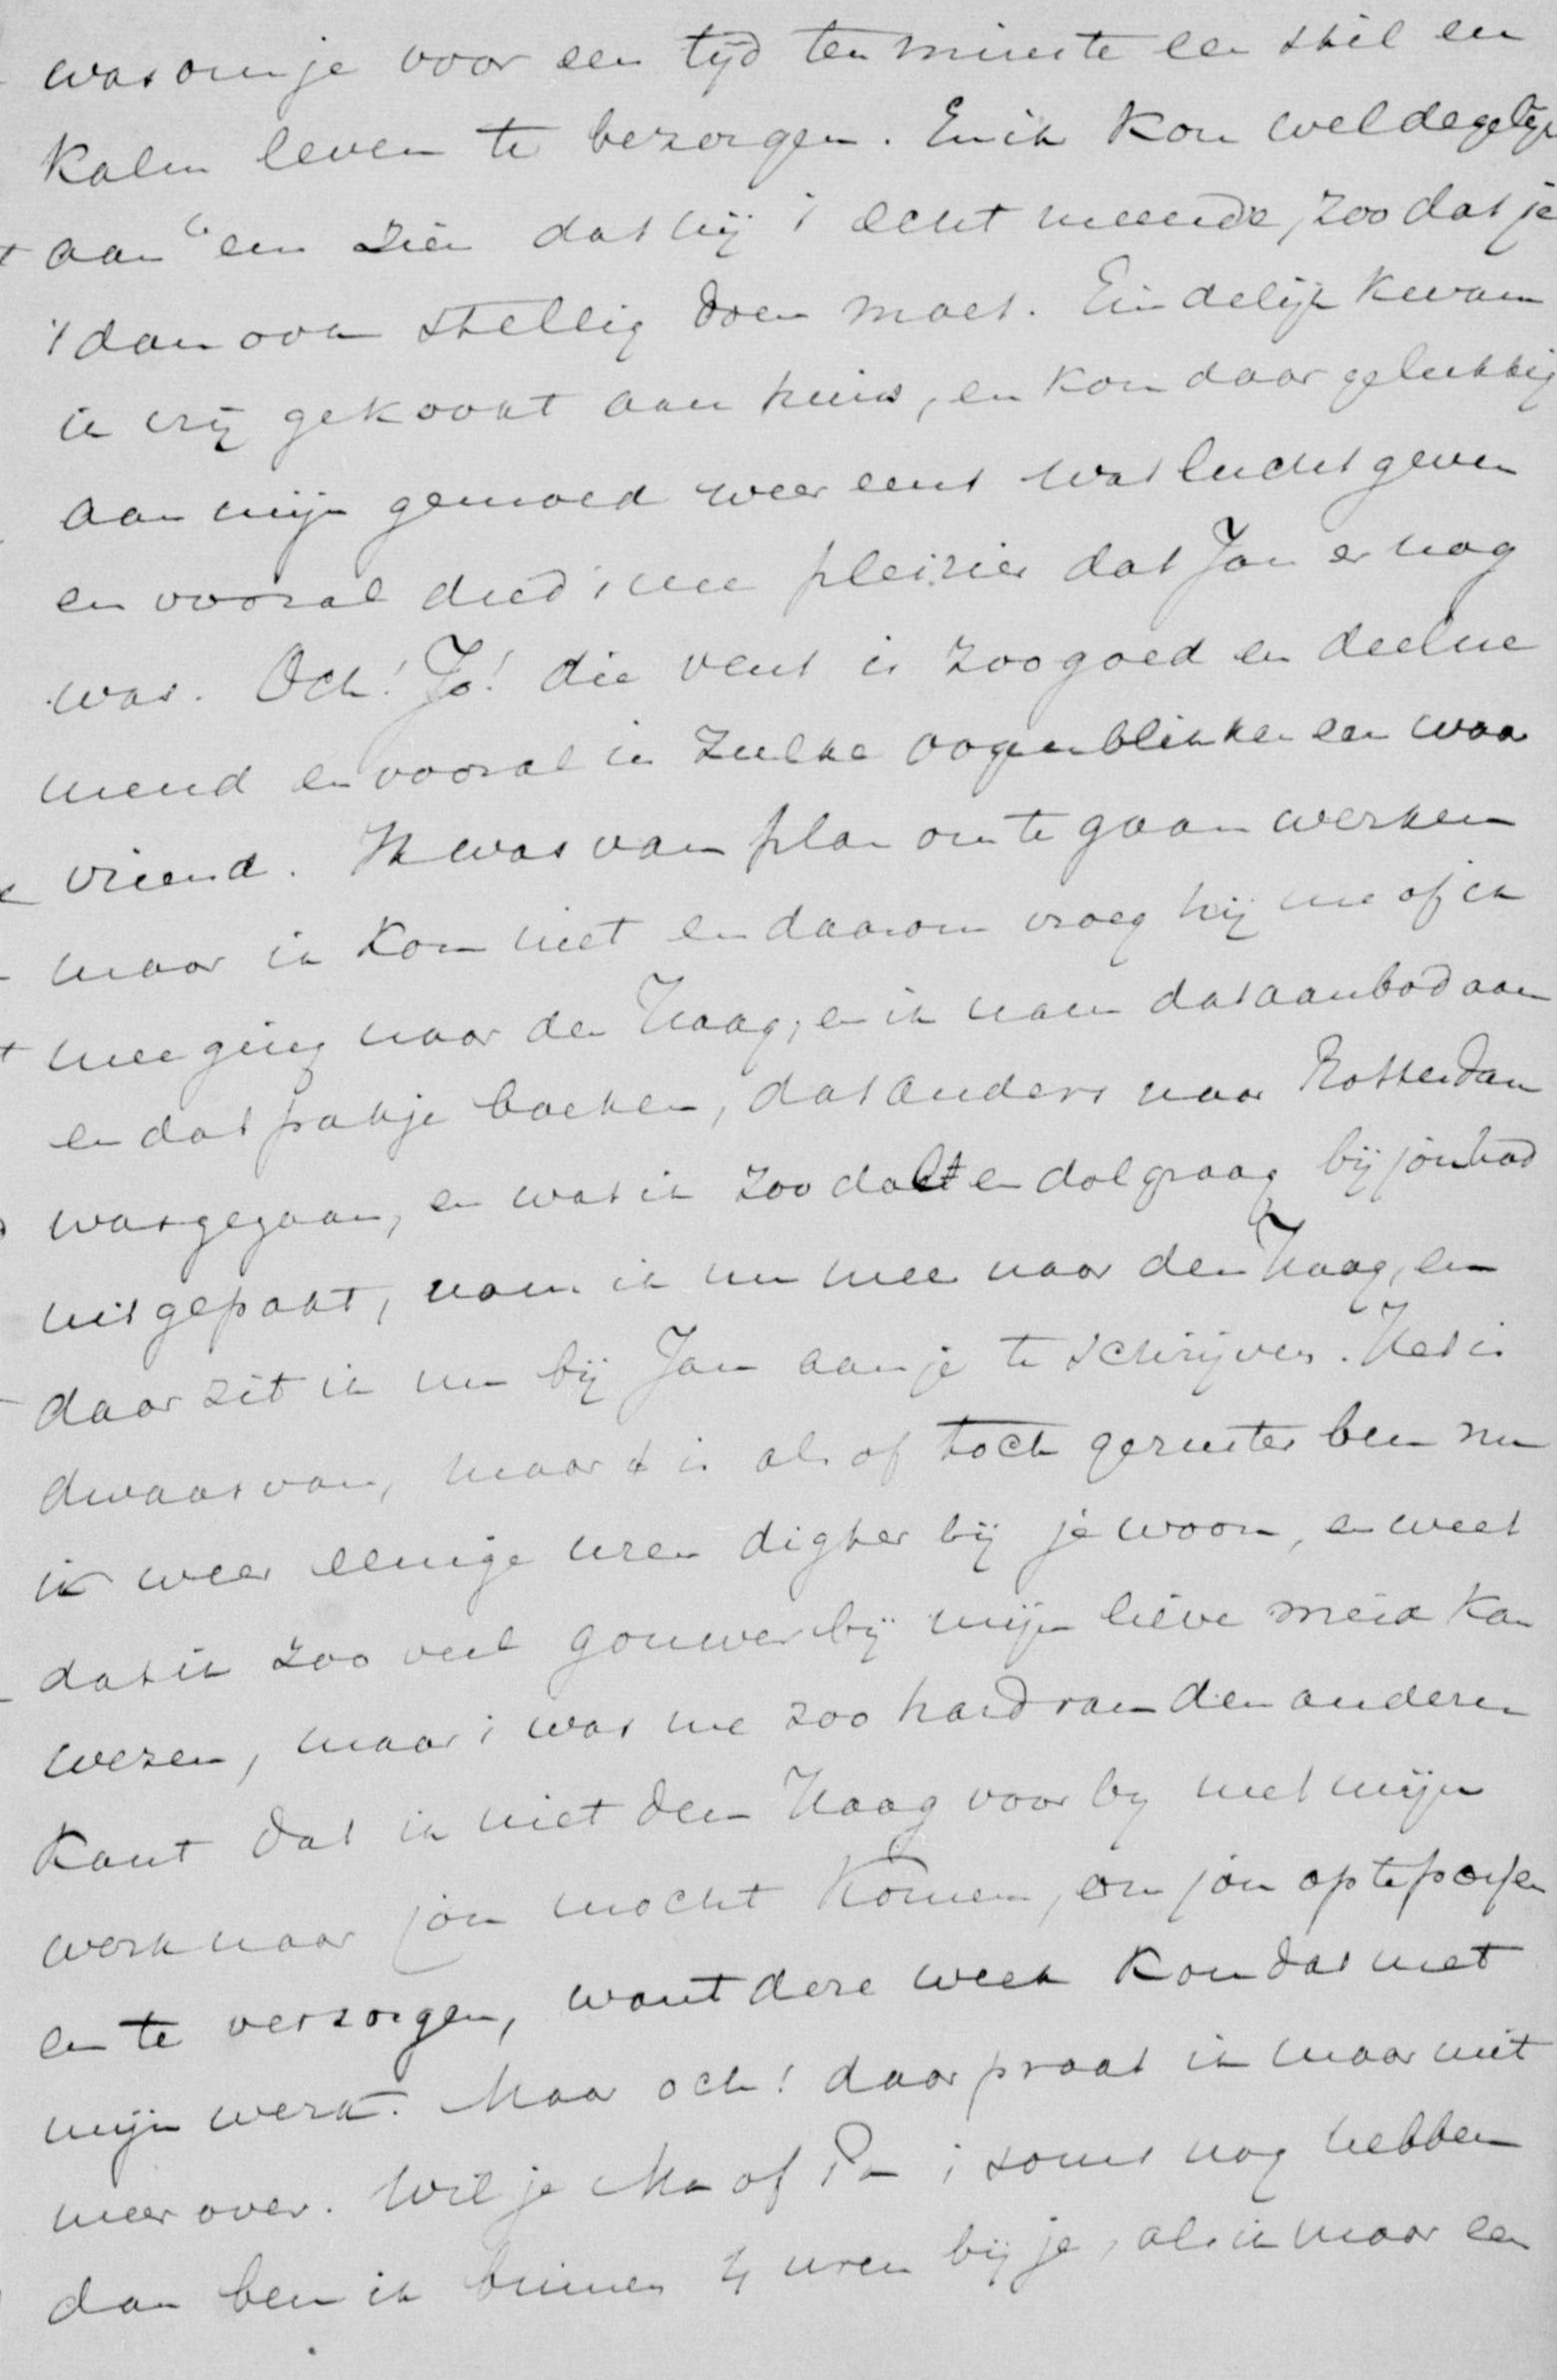 was om je voor een tijd ten minste een stil en
kalm leven te bezorgen. En ik kon wel degelijk
aan 'em zien dat hij 't echt meende, zoo dat je
't dan ook stellig doen moet. Eindelijk kwam
ik vrij gekookt aan huis, en kon daar gelukkig
aan mijn gemoed weer eens wat lucht geven
en vooral deed 't me pleizier dat Jan er nog
was. Och! Jo! die vent is zoo goed en deelne
mend en vooral in zulke oogenblikken een waar
vriend. Ik was van plan om te gaan werken
maar ik kon niet en daarom vroeg hij me of ik
mee ging naar den Haag, en ik nam dat aanbod aan
en dat pakje boeken, dat anders naar Rotterdam
was gegaan, en wat ik zoo dolt en dolgraag bij jou had
uitgepakt, nam ik nu mee naar den Haag, en
daar zit ik nu bij Jan aan je te schrijven. Het is
dwaas van, maar 't is als of toch geruster ben nu
ik weer eenige uren digter bij je woon, en weet
dat ik zoo veel gouwer bij mijn lieve meid kan
wezen, maar 't was me zoo hard van den anderen
kant dat ik niet den Haag voor by met mijn
werk naar jou mocht komen, om jou op te passen
en te verzorgen, want deze week kon dat met
mijn werk. Maar och! daar praat ik maar niet
meer over. Wil je Ma of Pa 't soms nog hebben
dan ben ik binnen 4 uren bij je, als ik maar een